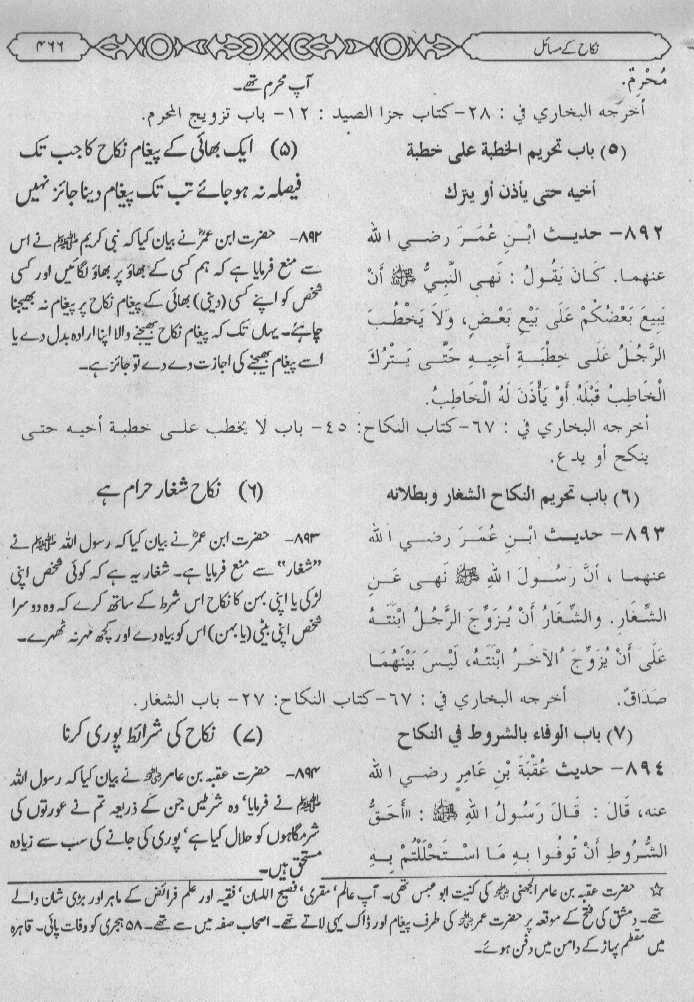 نکاح کے مسائل
۴۶۶
مُحْرِمٌ.
آپ محرم تھے۔
أخرجه البخاري في : ٢٨-كتاب جزا الصيد : ١٢- باب تزويج المحرم.
(٥) باب تحريم الخطبة على خطبة
أخيه حتى يأذن أو يترك
(۵) ایک بھائی کے پیغام نکاح کا جب تک
فیصلہ نہ ہو جائے تب تک پیغام دینا جائز نہیں
٨٩٢- حديث ابْنِ عُمَرَ رضي الله
عنهما. كَانَ يَقُولُ : نَهى النَّبِيُّ ﷺ أَنْ
يَبِيعَ بَعْضُكُمْ عَلَى بَيْعِ بَعْضٍ، وَلَا يَخْطُبَ
الرَّجُلُ عَلَى خِطْبَةِ أَخِيهِ حَتَّى يَتْرُكَ
الْخَاطِبُ قَبْلَهُ أَوْ يَأْذَنَ لَهُ الْخَاطِبُ.
۸۹۲- حضرت ابن عمرؓ نے بیان کیا کہ نبی کریم ﷺ نے اس
سے منع فرمایا ہے کہ ہم کسی کے بھاؤ پر بھاؤ لگائیں اور کسی
شخص کو اپنے کسی (دینی) بھائی کے پیغام نکاح پر پیغام نہ بھیجنا
چاہئے۔ یہاں تک کہ پیغام نکاح بھیجنے والا اپنا ارادہ بدل دے یا
اسے پیغام بھیجنے کی اجازت دے دے تو جائز ہے۔
أخرجه البخاري في : ٦٧-كتاب النكاح: ٤٥- باب لا يخطب على خطبة أخيه حتى
ينكح أو يدع.
(٦) باب تحريم النكاح الشغار وبطلانه
(۶) نکاح شغار حرام ہے
٨٩٣- حديث ابْنِ عُمَرَ رضي الله
عنهما ، أَنَّ رَسُولَ اللهِ ﷺ نَهى عَنِ
الشِّغَارِ. والشِّغَارُ أَنْ يُزَوِّجَ الرَّجُلُ ابْنَتَهُ
عَلَى أَنْ يُزَوِّجَ الآخَرُ ابْنَتَهُ، لَيْسَ بَيْنَهُمَا
صَدَاقٌ.
۸۹۳- حضرت ابن عمرؓ نے بیان کیا کہ رسول اللہ ﷺ نے
”شغار“ سے منع فرمایا ہے۔ شغار یہ ہے کہ کوئی شخص اپنی
لڑکی یا اپنی بہن کا نکاح اس شرط کے ساتھ کرے کہ وہ دوسرا
شخص اپنی بیٹی (یا بہن) اس کو بیاہ دے اور کچھ مہر نہ ٹھہرے۔
أخرجه البخاري في : ٦٧-كتاب النكاح: ٢٧- باب الشغار.
(٧) باب الوفاء بالشروط في النكاح
(۷) نکاح کی شرائط پوری کرنا
٨٩٤- حديث عُقْبَةَ بْنِ عَامِرٍ رضي الله
عنه، قَالَ : قَالَ رَسُولُ اللهِ ﷺ : «أَحَقُّ
الشُّرُوطِ أَنْ تُوفُوا بِهِ مَا اسْتَحْلَلْتُمْ بِهِ
۸۹۴- حضرت عقبہ بن عامرؓ نے بیان کیا کہ رسول اللہ
ﷺ نے فرمایا، وہ شرطیں جن کے ذریعہ تم نے عورتوں کی
شرمگاہوں کو حلال کیا ہے، پوری کی جانے کی سب سے زیادہ
مستحق ہیں۔
☆ حضرت عقبہ بن عامر الجھنیؓ کی کنیت ابو عبس تھی۔ آپ عالم، مقری، فصیح اللسان، فقیہ اور علم فرائض کے ماہر اور بڑی شان والے
تھے۔ دمشق کی فتح کے موقعہ پر حضرت عمرؓ کی طرف پیغام اور ڈاک یہی لاتے تھے۔ اصحاب صفہ میں سے تھے۔ ۵۸ ہجری کو وفات پائی۔ قاہرہ
میں مقطم پہاڑ کے دامن میں دفن ہوئے۔